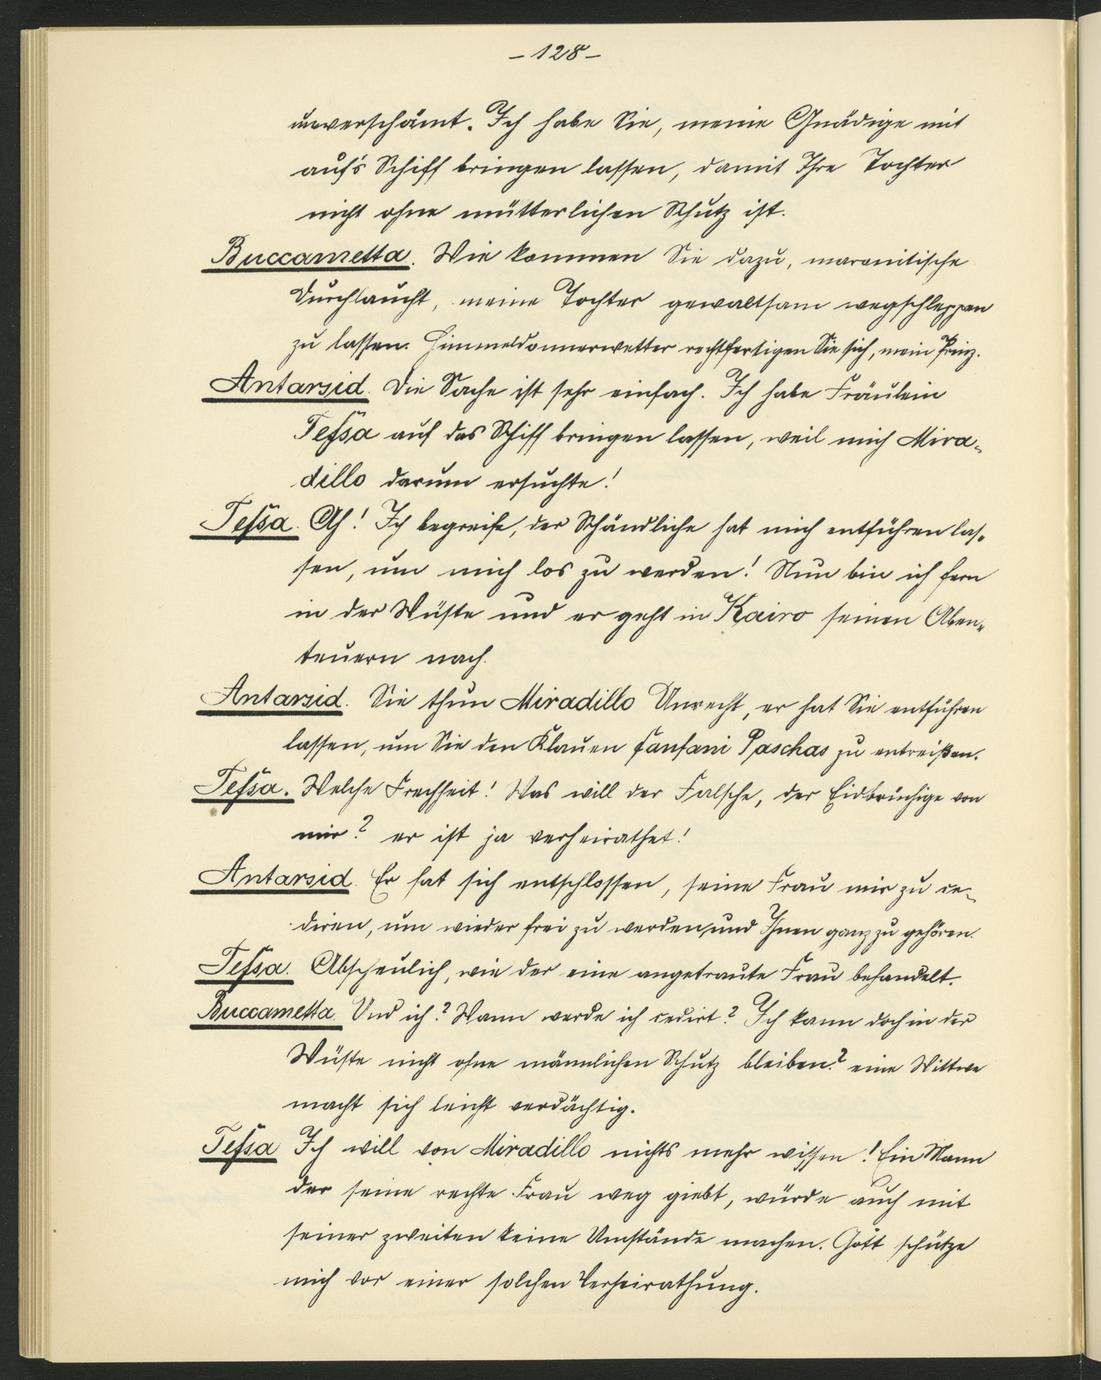 – 128 –
unverschämt. Ich habe Sie, meine Gnädige mit
auf's Schiff bringen lassen, damit Ihre Tochter
nicht ohne mütterlichen Schutz ist.
Buccametta. Wie kommen Sie dazu, maronitische
Durchlaucht, meine Tochter gewaltsam wegschleppen
zu lassen. Himmeldonnerwetter rechtfertigen Sie sich, mein Prinz.
Antarsid. Die Sache ist sehr einfach. Ich habe Fräulein
Tessa auf das Schiff bringen lassen, weil mich Mira-
dillo darum ersuchte!
Tessa. Ah! Ich begreife, der Schändliche hat mich entführen las-
sen, um mich los zu werden! Nun bin ich fern
in der Wüste und er geht in Kairo seinen Aben-
teuern nach.
Antarsid. Sie thun Miradillo Unrecht, er hat Sie entführen
lassen, um Sie den Klauen Fanfani Paschas zu entreißen.
Tessa. Welche Frechheit! Was will der Falsche, der Eidbrüchige von
mir? er ist ja verheirathet!
Antarsid. Er hat sich entschlossen, seine Frau mir zu ce-
diren, um wieder frei zu werden, und Ihnen ganz zu gehören.
Tessa. Abscheulich, wie der eine angetraute Frau behandelt.
Buccametta Und ich? Wann werde ich cedirt? Ich kann doch in der
Wüste nicht ohne männlichen Schutz bleiben? eine Wittwe
macht sich leicht verdächtig.
Tessa Ich will von Miradillo nichts mehr wissen! Ein Mann
der seine rechte Frau weg giebt, würde auch mit
seiner zweiten keine Umstände machen. Gott schütze
mich vor einer solchen Verheirathung.